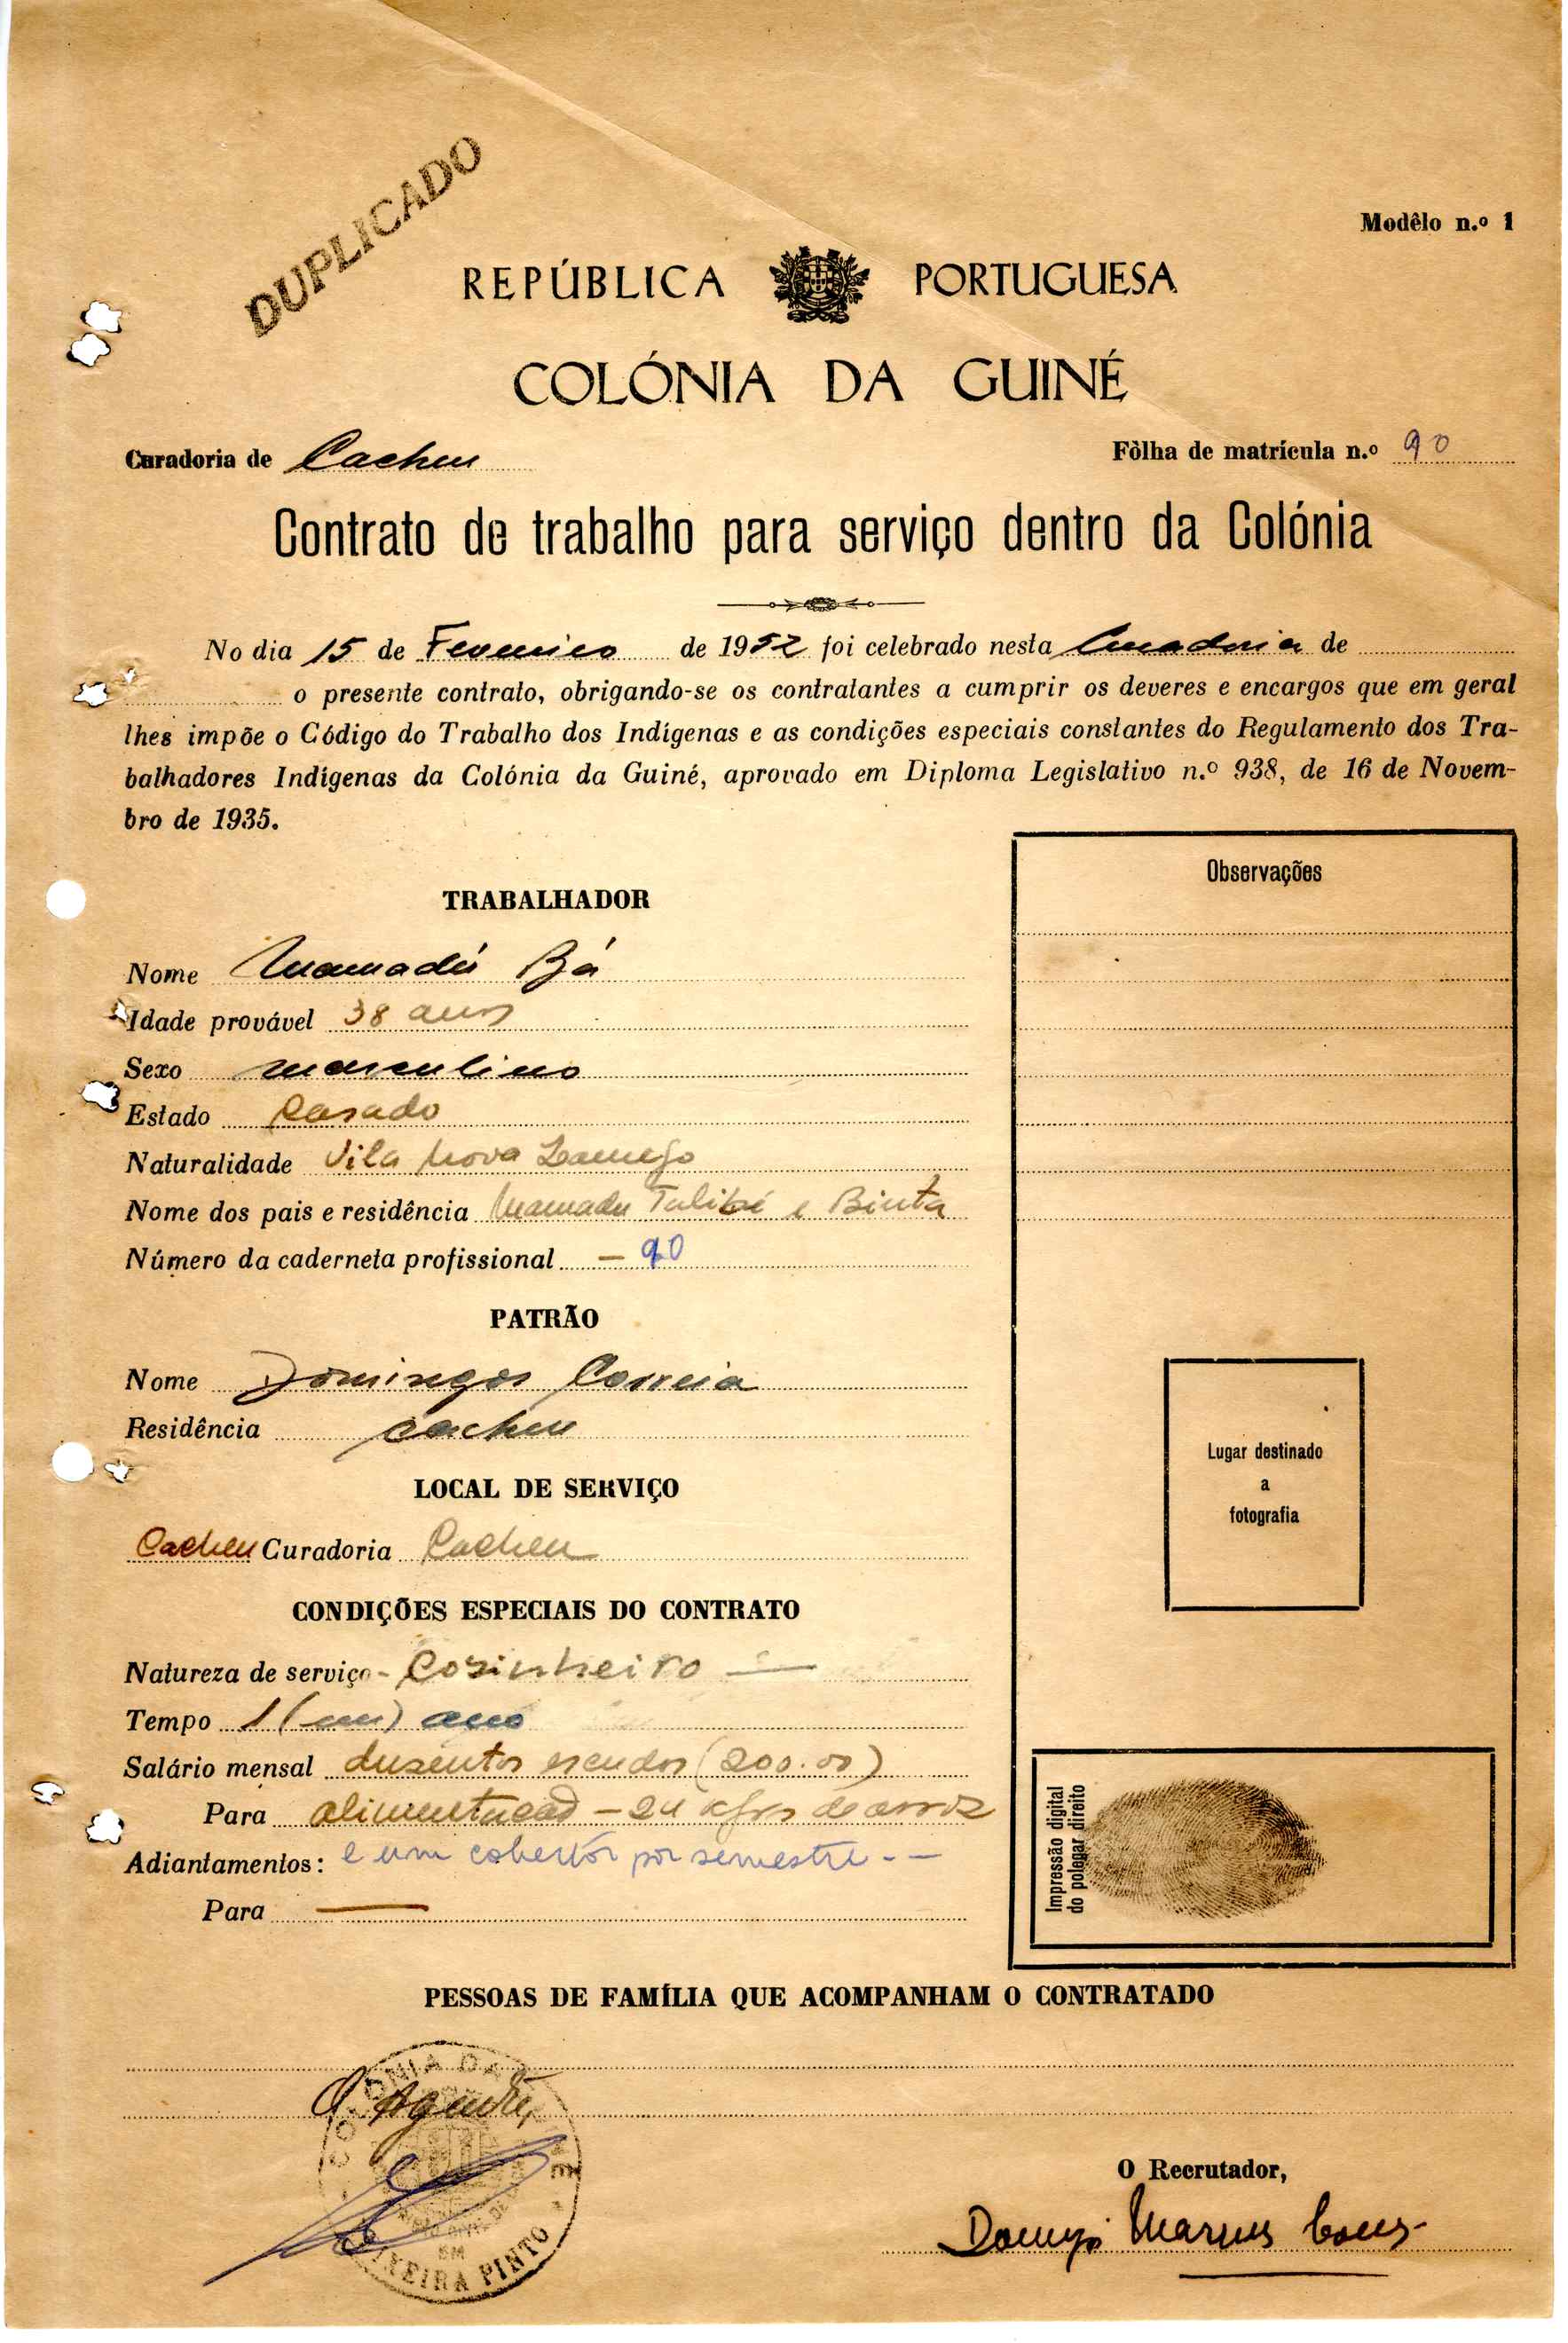 DUPLICADO
Modêlo n.º 1
REPÚBLICA PORTUGUESA
COLÓNIA DA GUINÉ
Curadoria de Cacheu
Fôlha de matrícula n.º 90
Contrato de trabalho para serviço dentro da Colónia
No dia 15 de Fevereiro de 1952 foi celebrado nesta Curadoria de
o presente contrato, obrigando-se os contratantes a cumprir os deveres e encargos que em geral
lhes impõe o Código do Trabalho dos Indígenas e as condições especiais constantes do Regulamento dos Tra-
balhadores Indígenas da Colónia da Guiné, aprovado em Diploma Legislativo n.º 938, de 16 de Novem-
bro de 1935.
Observações
TRABALHADOR
Nome Mamadú Bá
Idade provável 38 anos
Sexo masculino
Estado Casado
Naturalidade Vila Nova Lamego
Nome dos pais e residência Mamadu Talibé e Binta
Número da caderneta profissional — 90
PATRÃO
Nome Domingos Correia
Residência Cacheu
LOCAL DE SERVIÇO
Cacheu Curadoria Cacheu
Lugar destinado
a
fotografia
CONDIÇÕES ESPECIAIS DO CONTRATO
Natureza de serviço - Cosinheiro —
Tempo 1 (um) ano
Salário mensal dusentos escudos (200.00)
Para alimentação — 24 kgrs de arroz
Adiantamentos: e um cobertor por semestre - —
Para —
Impressão digital
do polegar direito
PESSOAS DE FAMÍLIA QUE ACOMPANHAM O CONTRATADO
O Agente,
COLÓNIA DA
EM
TEIXEIRA PINTO
O Recrutador,